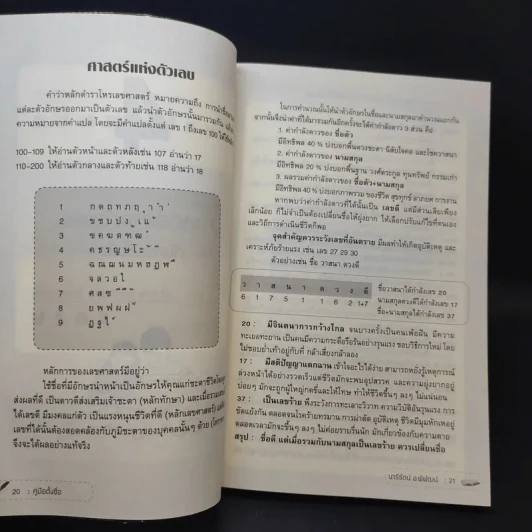 ศาสตร์แห่งตัวเลข
คำว่าหลักตำราโหรเลขศาสตร์ หมายความถึง การนำชื่อ
แต่ละตัวอักษรออกมาเป็นตัวเลข แล้วนำตัวอักษรนั้นมารวมกัน แล้ว
ความหมายจากคำแปล โดยจะมีคำแปลตั้งแต่ เลข 1 ถึงเลข 100
100-109 ให้อ่านตัวหน้าและตัวหลังเช่น 107 อ่านว่า 17
110-200 ให้อ่านตัวกลางและตัวท้ายเช่น 118 อ่านว่า 18
1 ก ด ถ ท ภ ฤ
2 ข ช บ ป ง
3 ฃ ฅ ฆ ต ฑ ฒ
4 ค ธ ร ญ ษ โ ะ
5 ฉ ณ ฌ น ม ห ฮ ฎ ฬ
6 จ ล ว อ ใ
7 ศ ส ซ
8 ย พ ฟ ผ ฝ
9 ฏ ฐ ไ
หลักการของเลขศาสตร์มีอยู่ว่า
ใช้ชื่อที่มีอักษรนำหน้าเป็นอักษรให้คุณแก่ชะตาชีวิต
ส่งผลที่ดี เป็นดาวที่ส่งเสริมเจ้าชะตา (หลักทักษา) และเมื่อรวม
ได้เลขดี มีมงคลแก่ตัว เป็นแรงหนุนชีวิตที่ดี (หลักเลขศาสตร์)
เลขที่ได้นั้นต้องสอดคล้องกับภูมิชะตาของบุคคลนั้นๆ ด้วย
จึงจะได้ผลอย่างแท้จริง
20 : คู่มือตั้งชื่อ
ในการคำนวณนั้นให้นำตัวอักษรในชื่อและนามสกุลมาคำนวณแยกกัน
จากนั้นจึงนำค่าที่ได้มารวมกันอีกครั้งจะได้ค่ากำลังดาว 3 ส่วน คือ
1. ค่ากำลังดาวของ ชื่อตัว
มีอิทธิพล 40 % บ่งบอกพื้นดวงชะตา นิสัยใจคอ และโชควาสนา
2. ค่ากำลังดาวของ นามสกุล
มีอิทธิพล 20 % บ่งบอกพื้นฐาน วงศ์ตระกูล ทุนทรัพย์ กรรมเก่า
3. ผลรวมค่ากำลังดาวของ ชื่อตัว+นามสกุล
มีอิทธิพล 40 % บ่งบอกภาพรวม ของชีวิต สุขทุกข์ ลาภยศ การงาน
หากพบว่าค่ากำลังดาวที่ได้นั้นเป็น เลขดี แต่มีส่วนเสียเพียง
เล็กน้อย ก็ไม่จำเป็นต้องเปลี่ยนชื่อให้ยุ่งยาก ให้เลือกปรับแก้ไขที่ตนเอง
และวิถีการดำเนินชีวิตก็พอ
จุดสำคัญควรระวังเลขที่อันตราย มีผลทำให้เกิดอุบัติเหตุ และ
เคราะห์ภัยร้ายแรง เช่น เลข 27 29 30
ตัวอย่างเช่น ชื่อ วาสนา ดวงดี
ว า ส น า ด ว ง ด ี
6 1 7 5 1 1 6 2 1+7
ชื่อวาสนาได้กำลังเลข 20
นามสกุลดวงดีได้กำลังเลข 17
ชื่อ+นามสกุลได้กำลังเลข 37
20 : มีจินตนาการกว้างไกล จนบางครั้งเป็นคนเพ้อฝัน มีความ
ทะเยอทะยาน เป็นคนมีความกระตือรือร้นอย่างรุนแรง ชอบวิธีการใหม่ โดย
ไม่ชอบย่ำเท้าอยู่กับที่ กล้าเสี่ยงกล้าลอง
17 : มีสติปัญญาแตกฉาน เข้าใจอะไรได้ง่าย สามารถหยั่งรู้เหตุการณ์
ล่วงหน้าได้อย่างรวดเร็วแต่ชีวิตมักจะพบอุปสรรค และความยุ่งยากอยู่
บ่อยๆ มักจะถูกผู้ใหญ่กดขี่และให้โทษ ทำให้ชีวิตขึ้นๆ ลงๆ ไม่แน่นอน
37 : เป็นเลขร้าย พึงระวังการทะเลาะวิวาท ความวิบัติอันรุนแรง การ
ขัดแย้งกัน ตลอดจนโรคร้ายทรมาน การผ่าตัด อุบัติเหตุ ชีวิตมีความทุกข์
ตลอดเวลามักจะขึ้นๆ ลงๆ ไม่ค่อยราบรื่นนัก มักเกี่ยวข้องกับความตาย
สรุป : ชื่อดี แต่เมื่อรวมกับนามสกุลเป็นเลขร้าย ควรเปลี่ยนชื่อ
นารีรัตน์ : 21